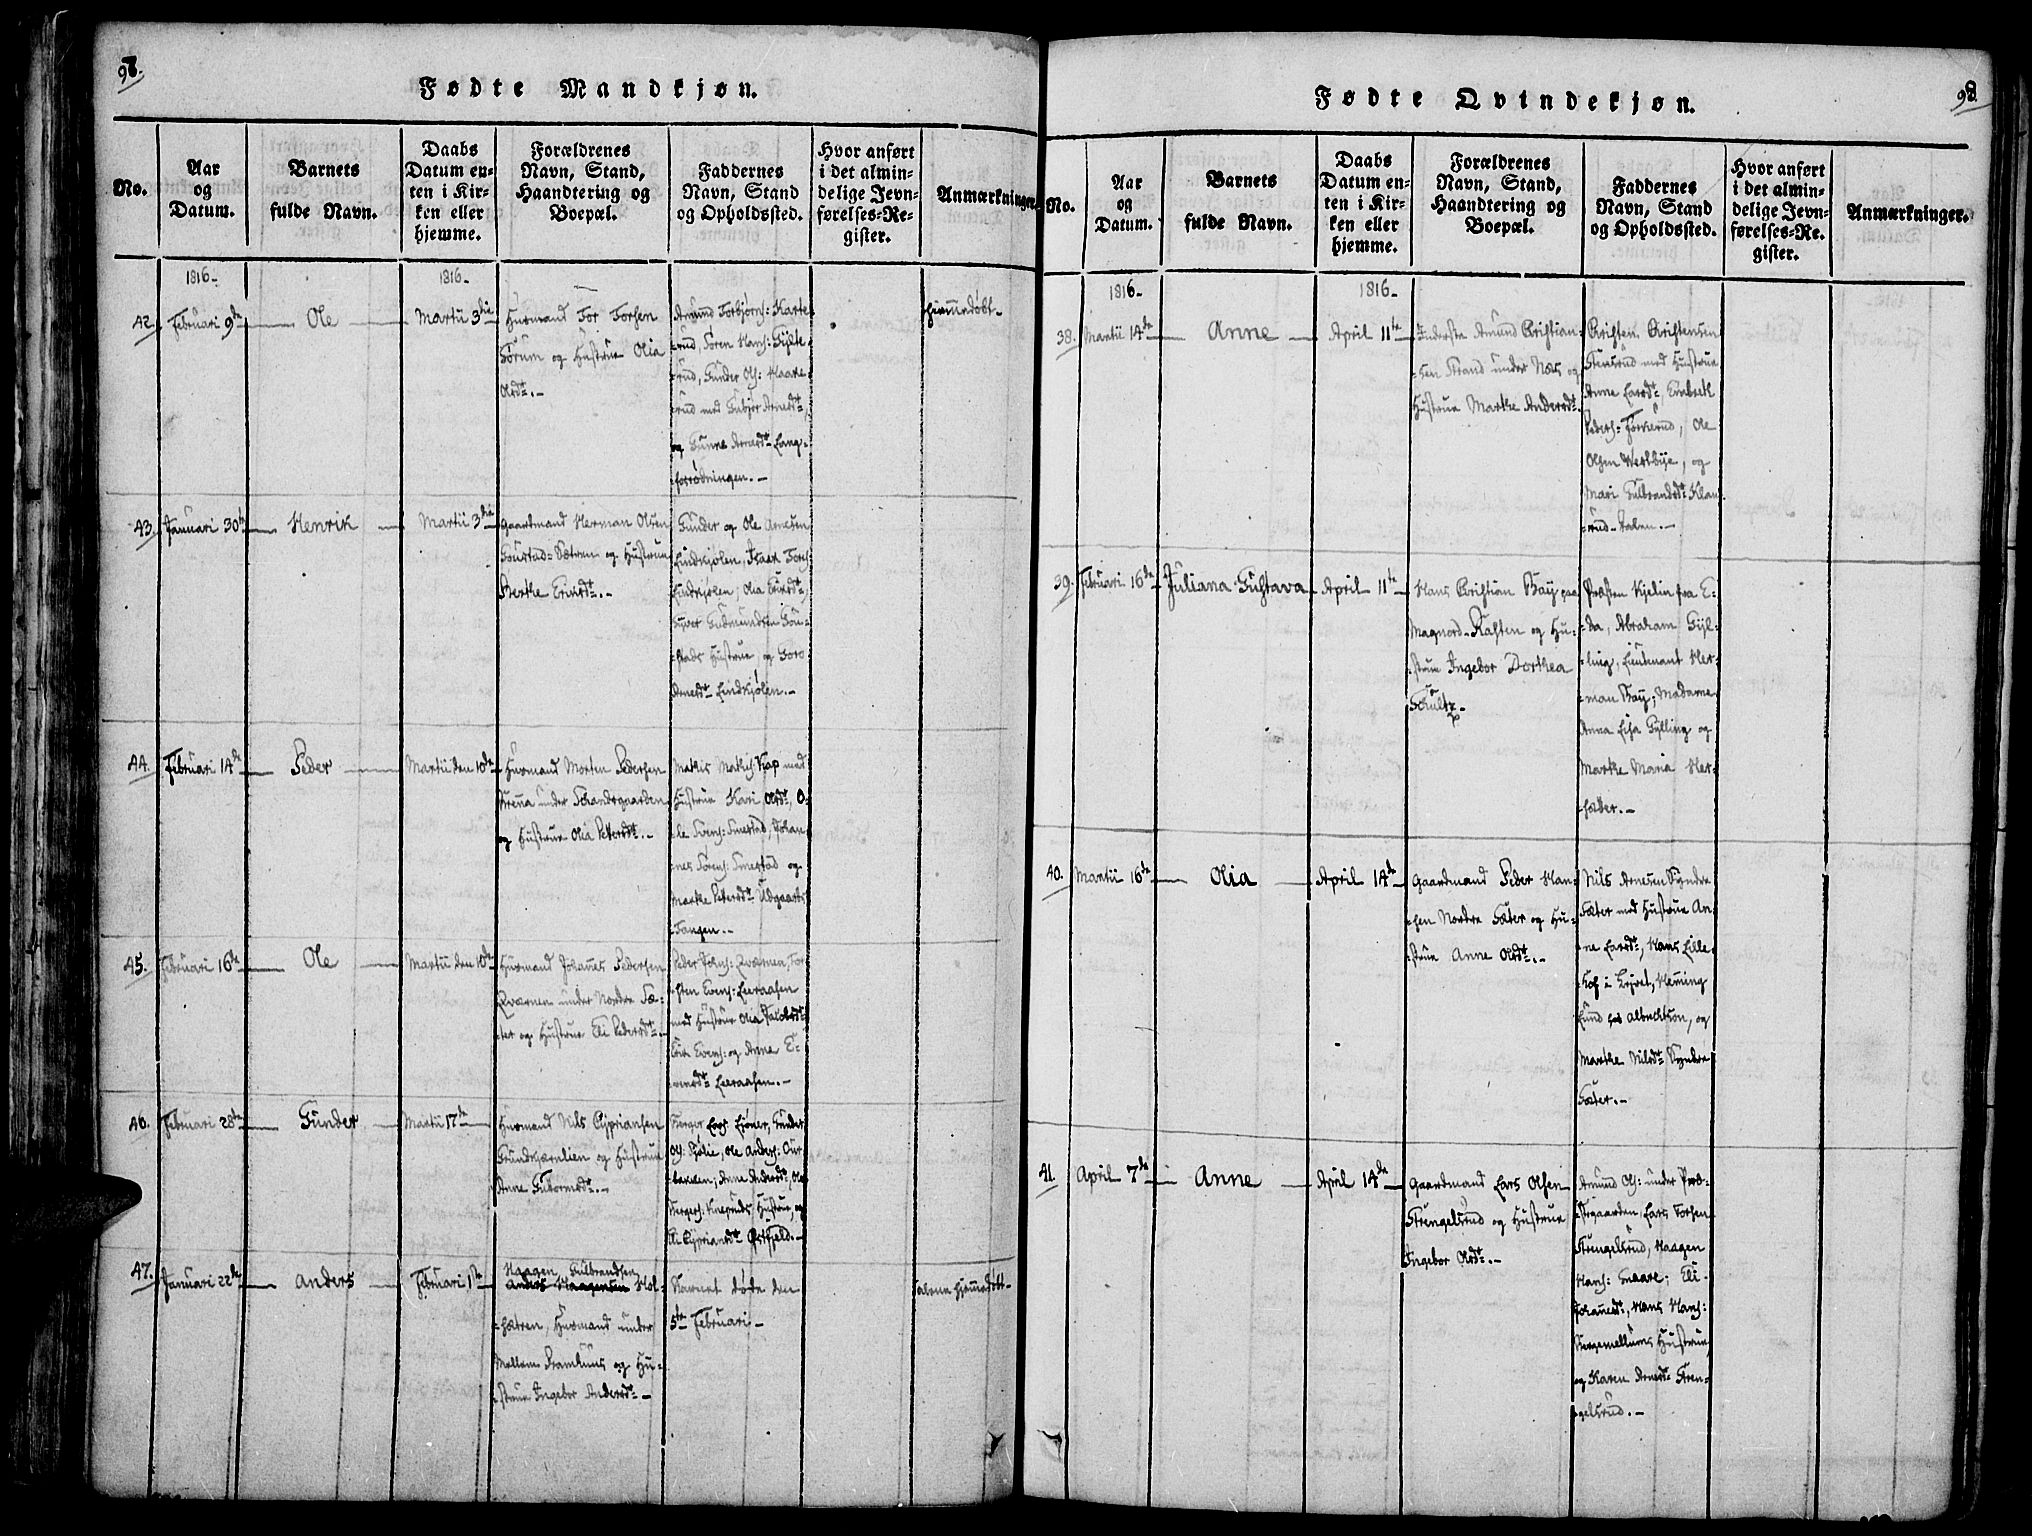 97.
Fødte Mandkjøn.
No.
Aar
og
Datum.
Barnets
fulde Navn.
Daabs
Datum en-
ten i Kir-
ken eller
hjemme.
Forældrenes
Navn, Stand,
Haandtering og
Boepæl.
Faddernes
Navn, Stand
og Opholdssted.
Hvor anført
i det almin-
delige Jevn-
førelses-Re-
gister.
Anmærkninger.
1816.
1816.
42.
Februari 9de
Ole
Martii 3die
Huusmand Tor Torsen
Sørum og Hustrue Olia
Olsdt.-
Amund Torbjørns: Karte-
rud, Søren Hans: Gylte-
rud, Gunder Ols: Haare-
rud med Gubjør Arnesdt,
og Gunne Arnesdt Lang-
forrødningen.-
hjemmedøbt-
43.
Januari 30te
Henrik
Martii 3die
Gaardmand Herman Olsen
Goustad-Sætren og Hustrue
Berthe Ericsdt.-
Gunder og Ole Arnesen
Lindkjølen, Isaak Tors:
Lindkjølen; Olia Ericsdt,
Syver Gudmundsen Gou-
stads Hustrue, og Goro
Arnesdt Lindkjølen.-
44.
Februari 14de
Peder
Martii den 10de
Huusmand Morten Pedersen
under Strandsgaarden
og Hustrue Olia Petersdt.-
Mathis Mathis: Kjap med
Hustrue Kari Olsdt, O-
le Svens: Smestad, Johan-
nes Sørens: Smestad og
Marthe Petersdt Udgaards-
Tangen.-
45.
Februari 16de
Ole
Martii den 10de
Huusmand Johannes Pedersen
Qværnen under Nordre Sæ-
ter og Hustrue Eli Pedersdt.-
Peder Johs: Qværnen, Tor-
sten Evens: Leeraasen
med Hustrue Olia Jacobsdt
Erik Evens: og Anne E-
vensdt Leeraasen.-
46.
Februari 28de
Gunder
Martii 17de
Huusmand Nils Cypriansen
Grundtjærnlien og Hustrue
Anne Guttormsdt.-
Berger Lars: Eiöner, Gunder
Ols: Sjølie, Ole Anders: Our-
bakken; Anne Andersdt, Ole
Bergers: Knapruds Hustrue, og
Eli Cypriansdt Ørtfjeld.-
47.
Januari 22de
Anders
Februari 1ste
Haagen Gulbrandsen
Anders Haagensen Hol-
sætren, Huusmand under
Mellem Skamlunds og Hu-
strue Ingebor Andersdt.-
Barnet døde den
5te Februari-
hjemmedøbt-
98
Fødte Qvindekjøn.
No.
Aar
og
Datum.
Barnets
fulde Navn.
Daabs
Datum en-
ten i Kir-
ken eller
hjemme.
Forældrenes
Navn, Stand,
Haandtering og
Boepæl.
Faddernes
Navn, Stand
og Opholdssted.
Hvor anført
i det almin-
delige Jevn-
førelses-Re-
gister.
Anmærkninger.
1816.
1816.
38.
Martii 14de
Anne
April 11te
Inderste Amund Christian-
sen Strand under Næs og
Hustrue Marthe Andersdt.
Christen Christensen
Stensrud med Hustrue
Anne Larsdt, Engebreth
Peders: Torkerud, Ole
Olsen Westbye, og
Mari Gulbrandsdt Klan-
rud-
39.
Februari 16de
Juliana Gustava
April 11te
Hans Christian Bay paa
Magnord-Kasten og Hu-
strue Ingebor Dorthea
Schultz.-
Præsten Kjelin fra E-
da, Abraham Gyl-
ling, Lieutnant Her-
man Bay; Madame
Anna Lisa Gylling og
Marthe Maria Her-
sæter.-
40.
Martii 16de
Olia
April 14de
Gaardmand Peder Han-
sen Nordre Sæter og Hu-
strue Anne Olsdt.-
Nils Arnesen Syndre
Sæter med Hustrue An-
ne Larsdt, Hans Lille-
hof i Leiret, Heming
Lund Albrechtson, og
Marthe Nilsdt Syndre
Sæter.-
41
April 7de
Anne
April 14de
Gaardmand Lars Olsen
Strengelsrud og Hustrue
Ingebor Olsdt.-
Amund Ols: under Præ-
stgaarden, Lars Torsen
Strengelsrud, Haagen
Hans: Gaare; Eli
Johannesdt, Hans Hans:
Bergemellums Hustrue,
og Karen Arnesdt Stren-
gelsrud.-